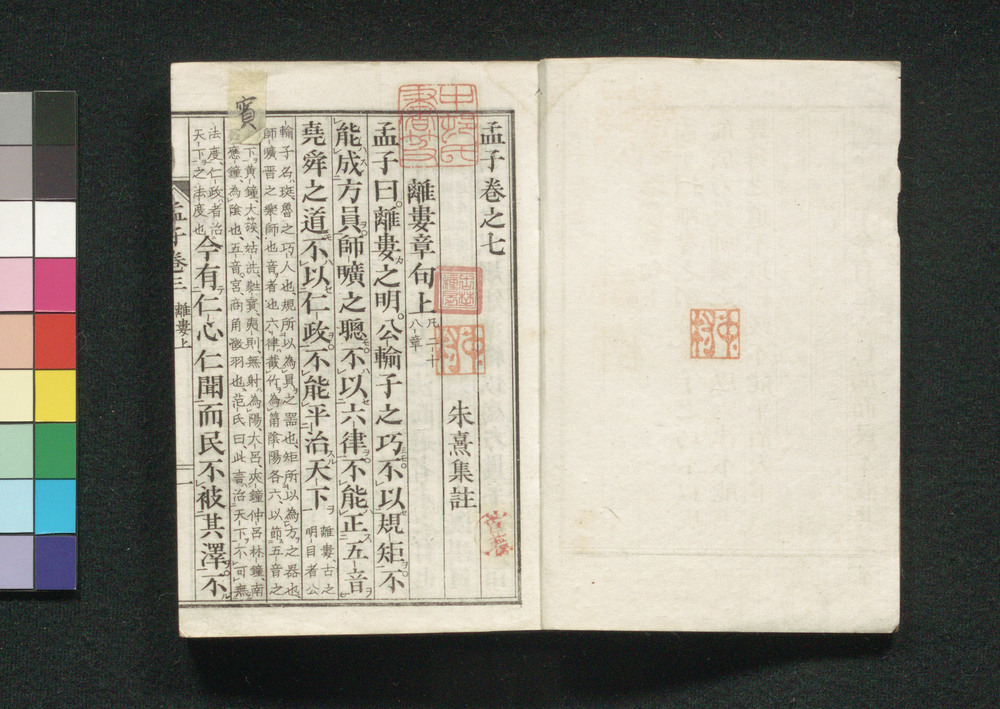 孟子卷之七
離婁章句上
凡二十
八章
朱熹集註
孟子曰離婁之明公輸子之巧不以規矩不
能成方員師曠之聰不以六律不能正五音
堯舜之道不以仁政不能平治天下
離婁古之
明目者公
輸子名班魯之巧人也規所以為員之器也矩所以為方之器也
師曠晉之樂師也音者也六律截竹為筩陰陽各六以節五音之
下黃鐘大簇姑洗蕤賓夷則無射為陽大呂夾鐘仲呂林鐘南
應鐘為陰也五音宮商角徵羽也范氏曰此言治天下不可無
法度仁政者治
天下之法度也
今有仁心仁聞而民不被其澤不
賓
孟子卷三
離婁上
一